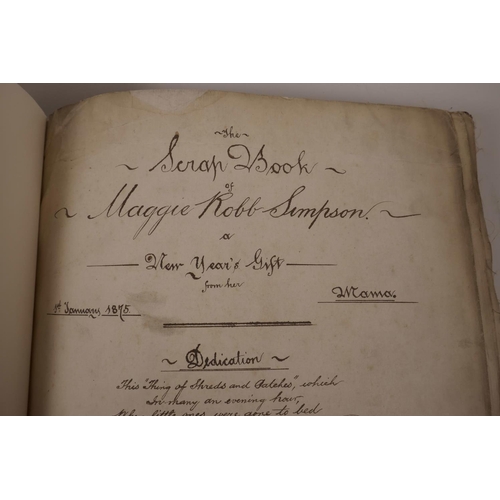 The
Scrap Book
of
Maggie Robb Simpson.
a
New Year's Gift
from her
Mama.
1st January 1875
Dedication
This "Thing of Shreds and Patches", which
In many an evening hour,
little ones were gone to bed